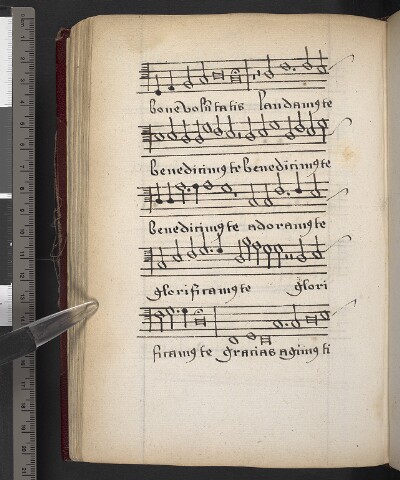 bone volūtatis laudam9 te
benedicim9 te benedicim9 te
benedicim9 te adoram9 te
glorificam9 te glori
ficam9 te gracias agim9 ti